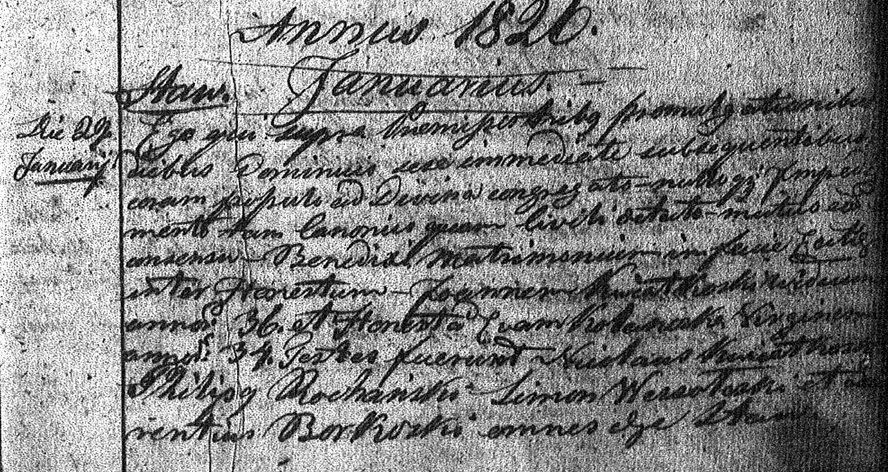 Annus 1826.
Staw. Januarius.
Die 29 Januarij
Ego qui supra praemissis tribus promulgationibus
diebus Dominicis sese immediate subsequentibus
coram populo ad Divina congregato nulloq impedi
mento tam Canonico quam Civili detecto mutuo eor
consensu Benedixi Matrimonium in facie Ecclae
inter Honestum Joannem Kwiatkoski viduum
annor 36 et Honestam Virginem
annor 34 Testes fuerunt Nicolaus Kwiatkoski
Philipg Rochański Simon Wessołoski et Lau
rentius Borkoski omnes de Staw